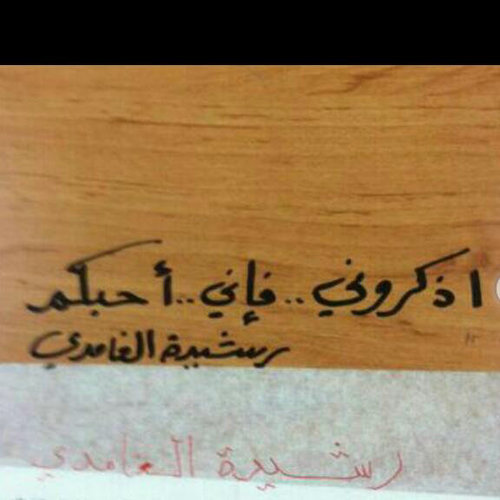 اذكروني.. فإني.. أحبكم
رشيدة الغامدي
رشيدة الغامدي